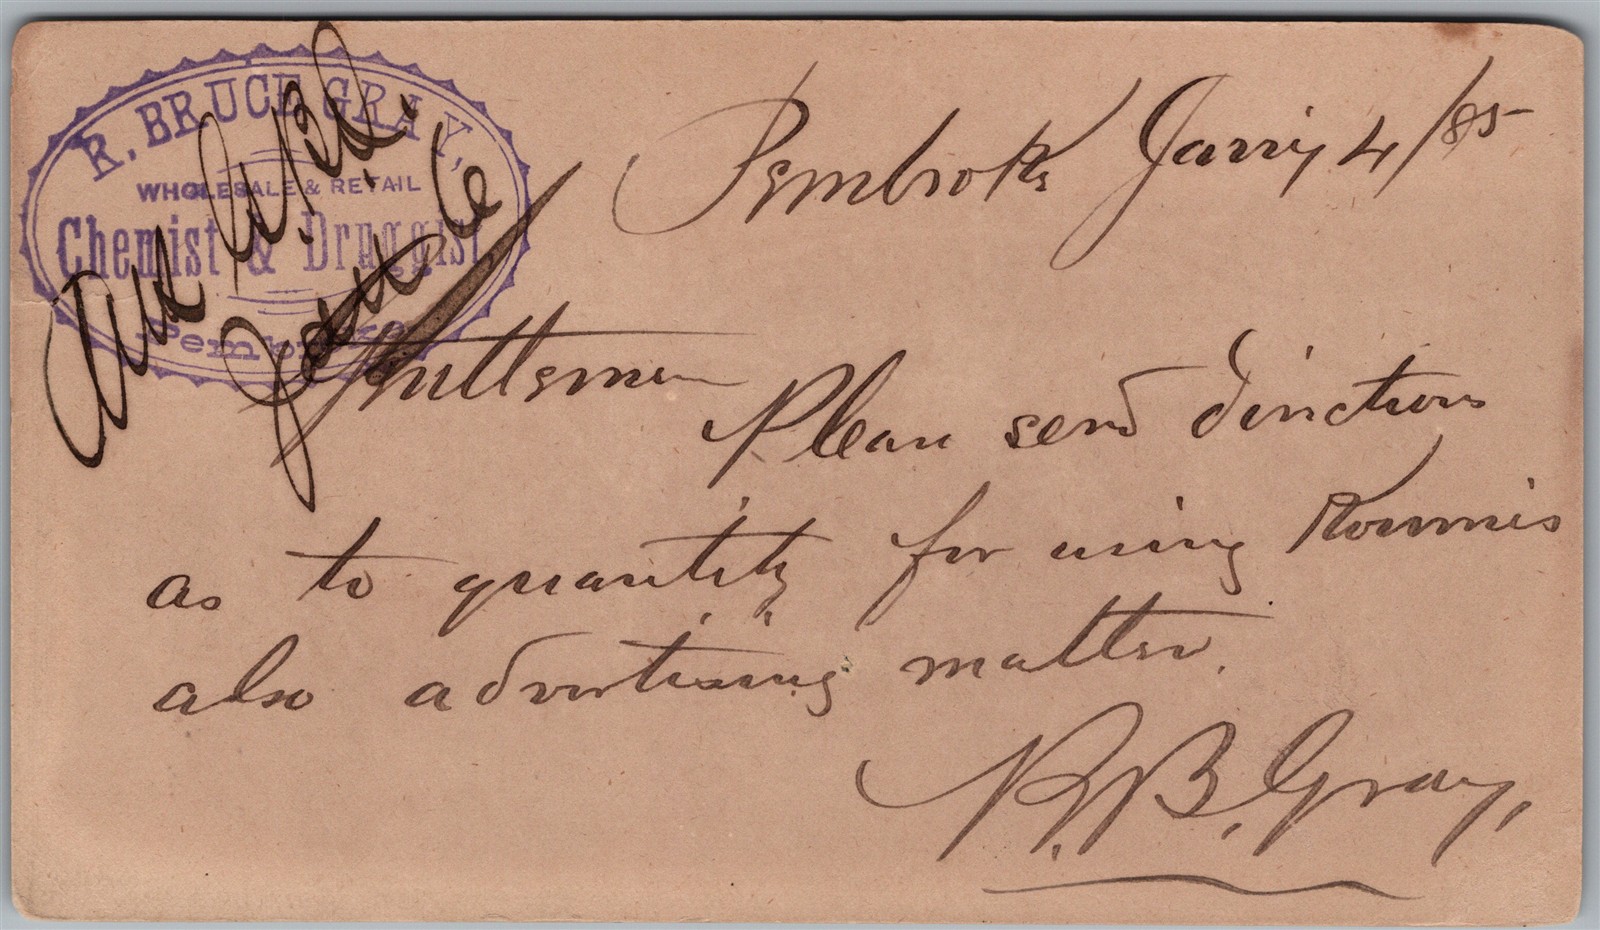 R. BRUCE GRAY,
WHOLESALE & RETAIL
Chemist & Druggist,
Pembroke
Jany 6
Pembroke Janry 4/85
Gentlemen
Please send directions
as to quantity for using Koumis
also advertising matter.
R. B. Gray,